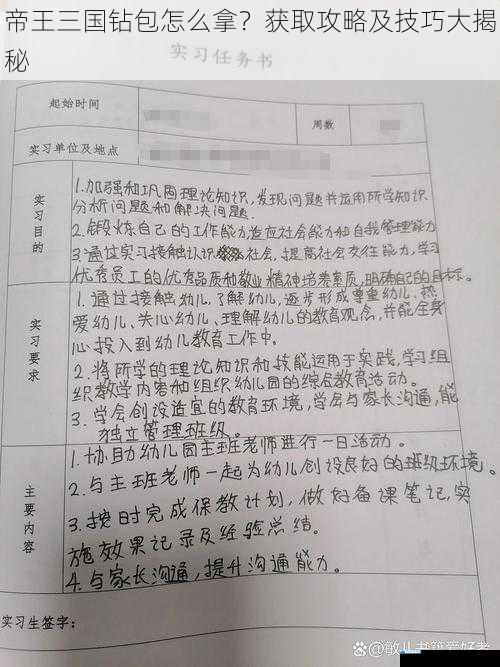 帝王三国钻包怎么拿？获取攻略及技巧大揭
秘
实习任务书
起始时间
周数
实习单位及地点
实习目的
1.加强和巩固理论知识,发现问题并运用所学知识
分析问题和解决问题.
2.锻炼自己的工作能力,适应社会能力和自我管理能力
3.通过实习接触认识社会,提高社会交往能力,学习
优秀员工的优秀品质和敬业精神培养素质,明确自己的目标。
实习要求
1.通过接触幼儿,了解幼儿,逐步形成尊重幼儿、热
爱幼儿、关心幼儿、理解幼儿的教育观念,并能全身
心投入到幼儿教育工作中。
2.将所学的理论知识和技能运用于实践,学习组
织教学内容和组织幼儿园的综合教育活动。
3.学会创设适宜的教育环境,学会与家长沟通,能
独立管理班级。
主要内容
1.协助幼儿园主班老师进行一日活动。
2.与主班老师一起为幼儿创设良好的班级环境。
3.按时完成保教计划,做好备课笔记,实
施效果记录及经验总结。
4.与家长沟通,提升沟通能力。
实习生签字：